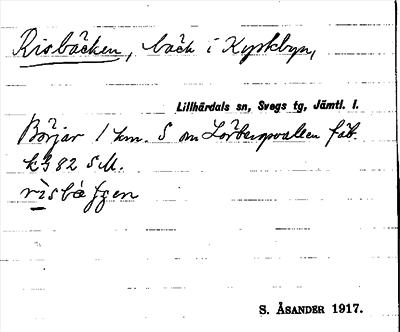 Risbäcken, bäck i Kyrkbyn,
Lillhärdals sn, Svegs tg, Jämtl. l.
Börjar 1 km. S om Lörbergsvallen fäb.
k382 SU.
S. ÅSANDER 1917.